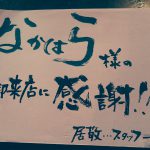 なかはら様の
御来店に感謝!!
居敬…スタッフ一